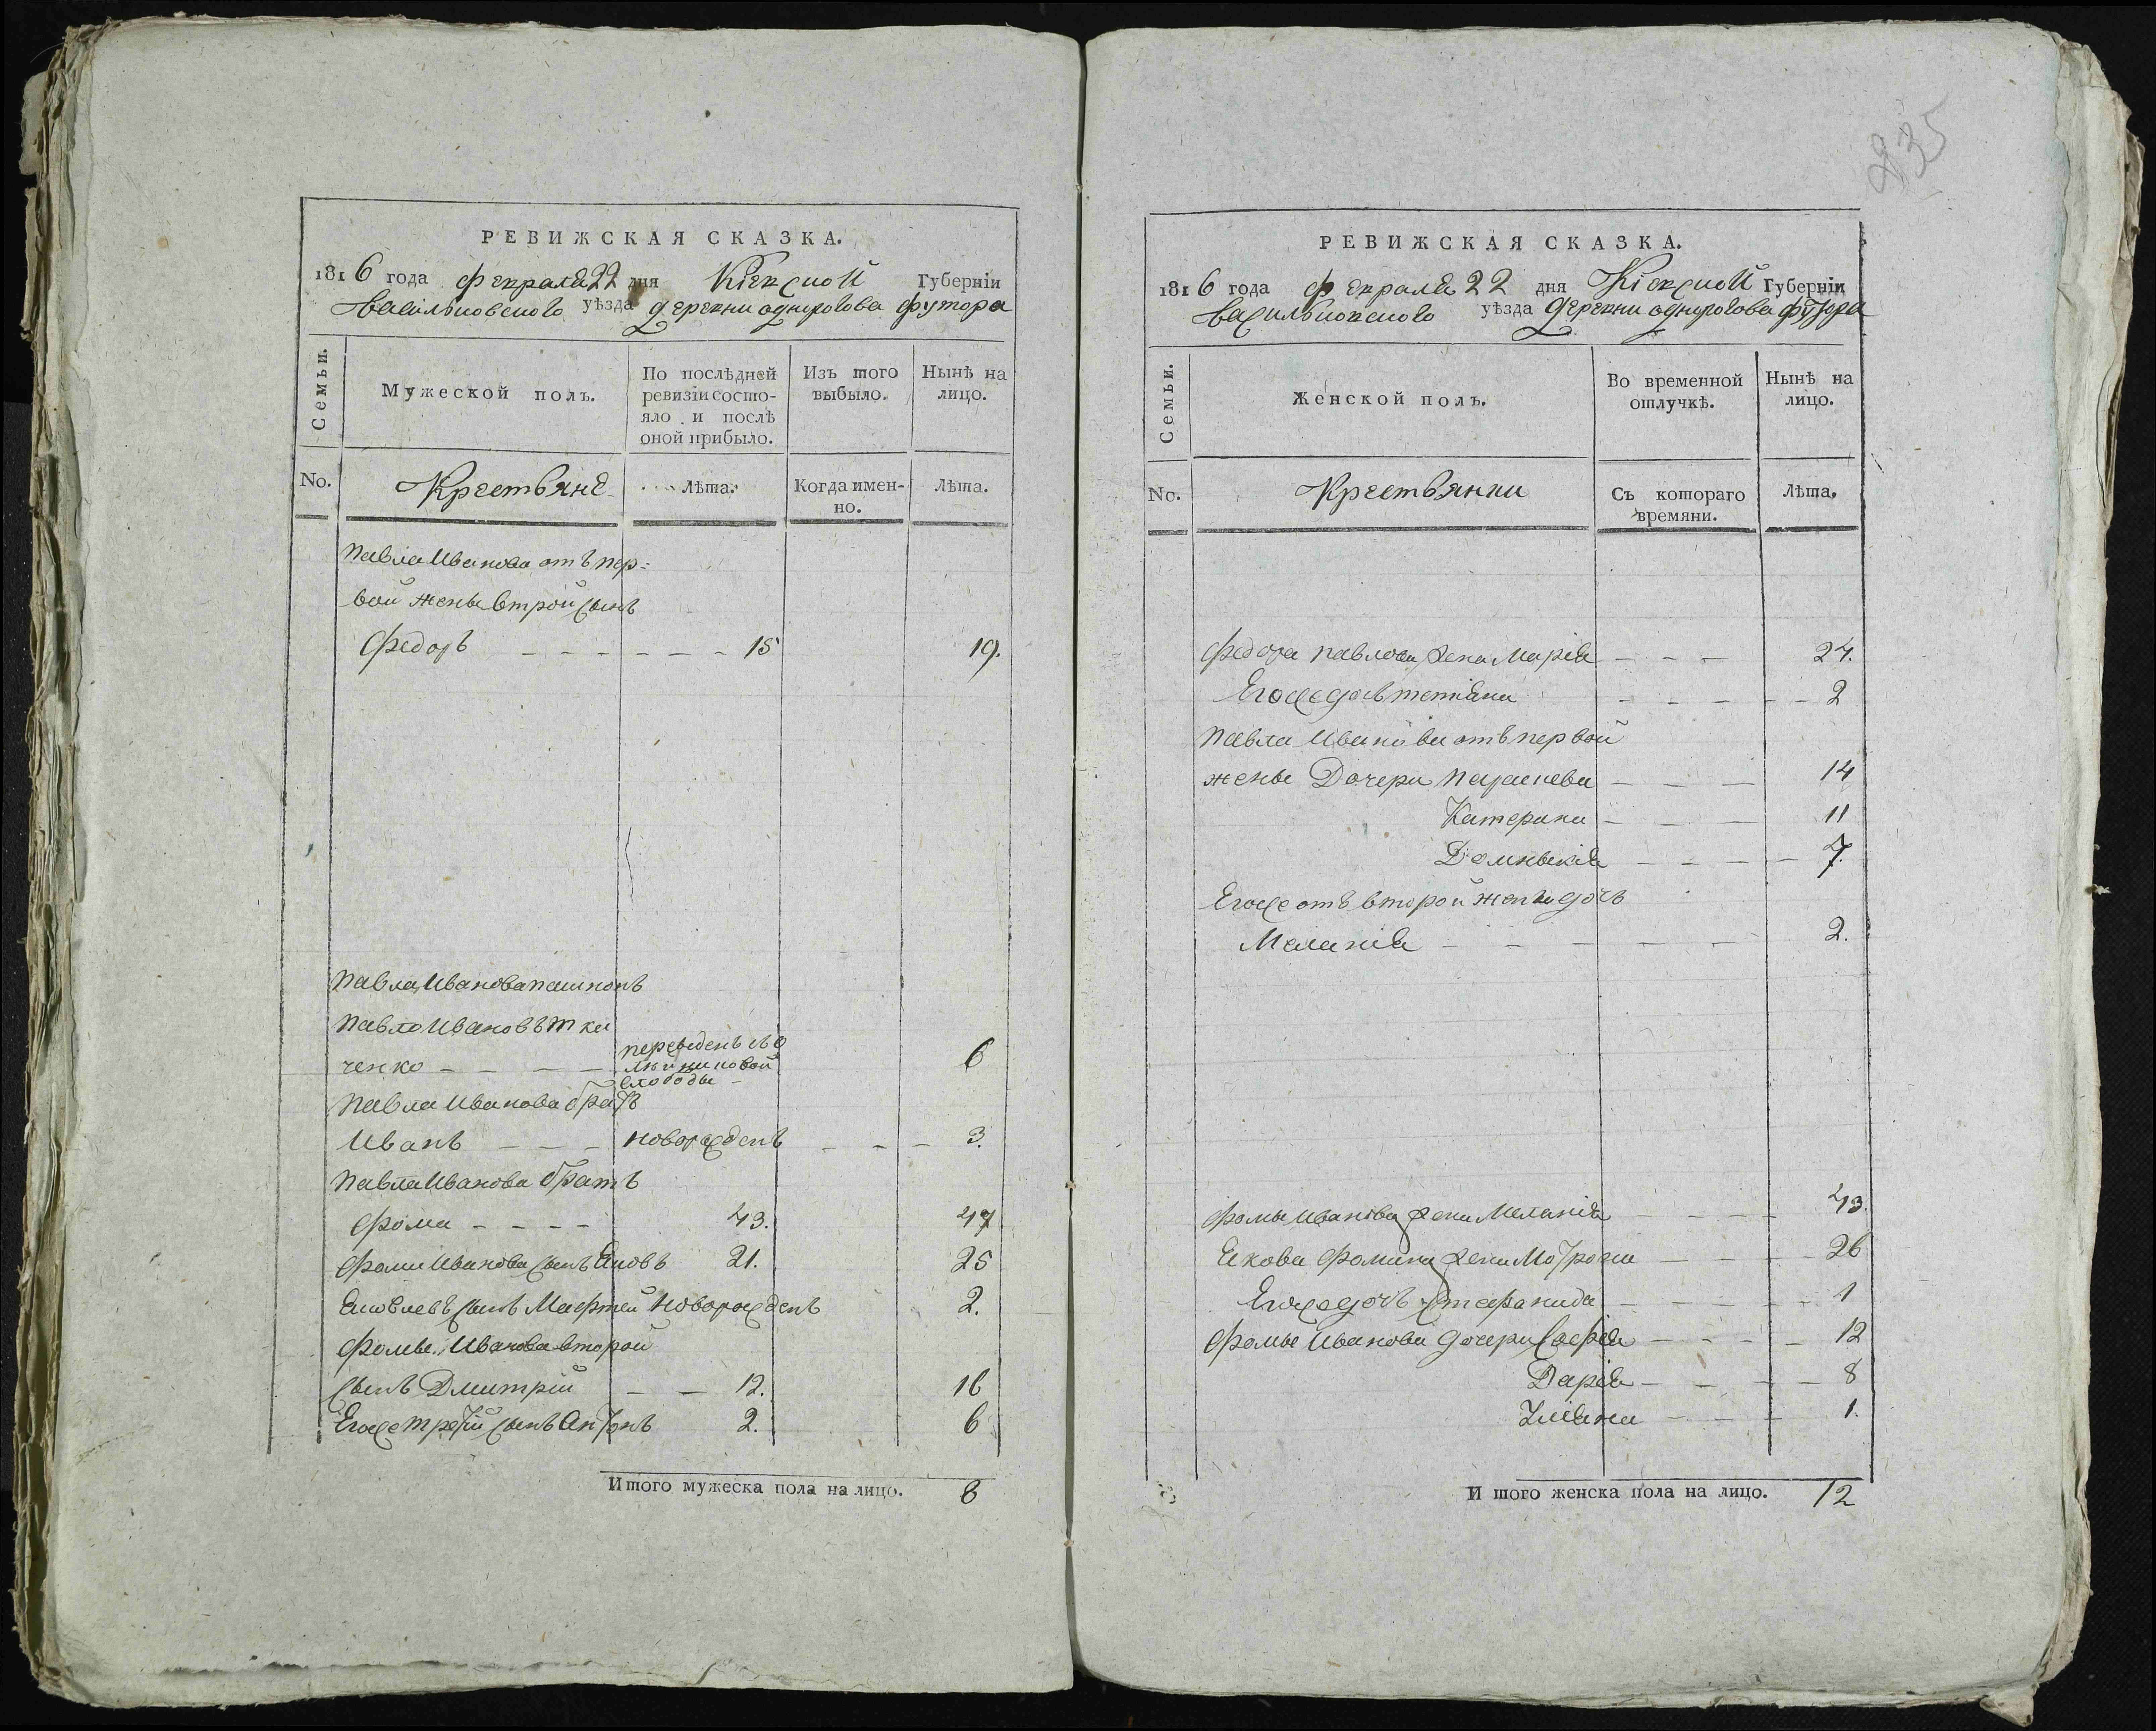 РЕВИЖСКАЯ СКАЗКА.
1816 года февраля 22 дня Кіевской Губерніи
Васильковского уѣзда деревни однорогова футора
Семьи.
Мужеской полъ.
По послѣдней
ревизіи состо-
яло и послѣ
оной прибыло.
Изъ того
выбыло.
Нынѣ на
лицо.
No.
Крестьяне
Лѣта.
Когда имен-
но.
Лѣта.
Павла Иванова отъ пер-
вой жены втрой сынъ
Федоръ 15 19.
Павла Иванова
Павло Ивановъ тка
ченко переведенъ слободы 6
Павла Иванова братъ
Иванъ новорожденъ 3.
Павла Иванова братъ
Фома 43. 47
Фомы Иванова сынъ Яковъ 21. 25
Яковлевъ сынъ Мафтей новорожденъ 2.
Фомы Иванова второй
сынъ Дмитрій 12. 16
Егоже третій сынъ Антонъ 2. 6
Итого мужеска пола на лицо. 8
835
РЕВИЖСКАЯ СКАЗКА.
1816 года февраля 22 дня Кіевской Губерніи
Васильковского уѣзда деревни однорогова футора
Семьи.
Женской полъ.
Во временной
отлучкѣ.
Нынѣ на
лицо.
No.
Крестьянки
Съ котораго
времяни.
Лѣта.
Федора Павлова жена Марія 24.
Егоже дочь тетіяна 2
Павла Иванова отъ первой
жены Дочери Параскева 14
Катерина 11
Домникія 7.
Егоже отъ второй жены дочь
Меланія 2.
Фомы Иванова жена Меланія 43.
Якова Фомина жена Мотрона 26
Егоже дочь Стефанида 1
Фомы Иванова дочери Софія 12
Дарія 8
Уліяна 1.
Итого женска пола на лицо. 12